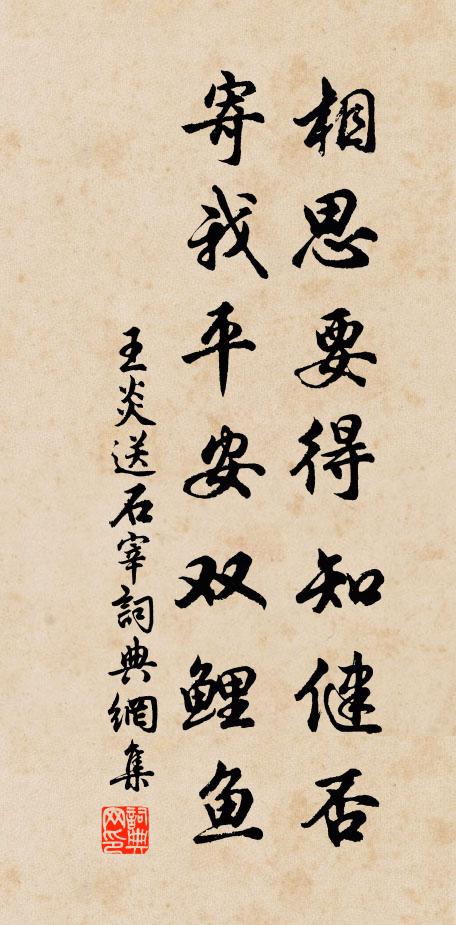 相思要得知健否
寄我平安双鲤鱼
王炎送石宰詞典網集
詞典网印